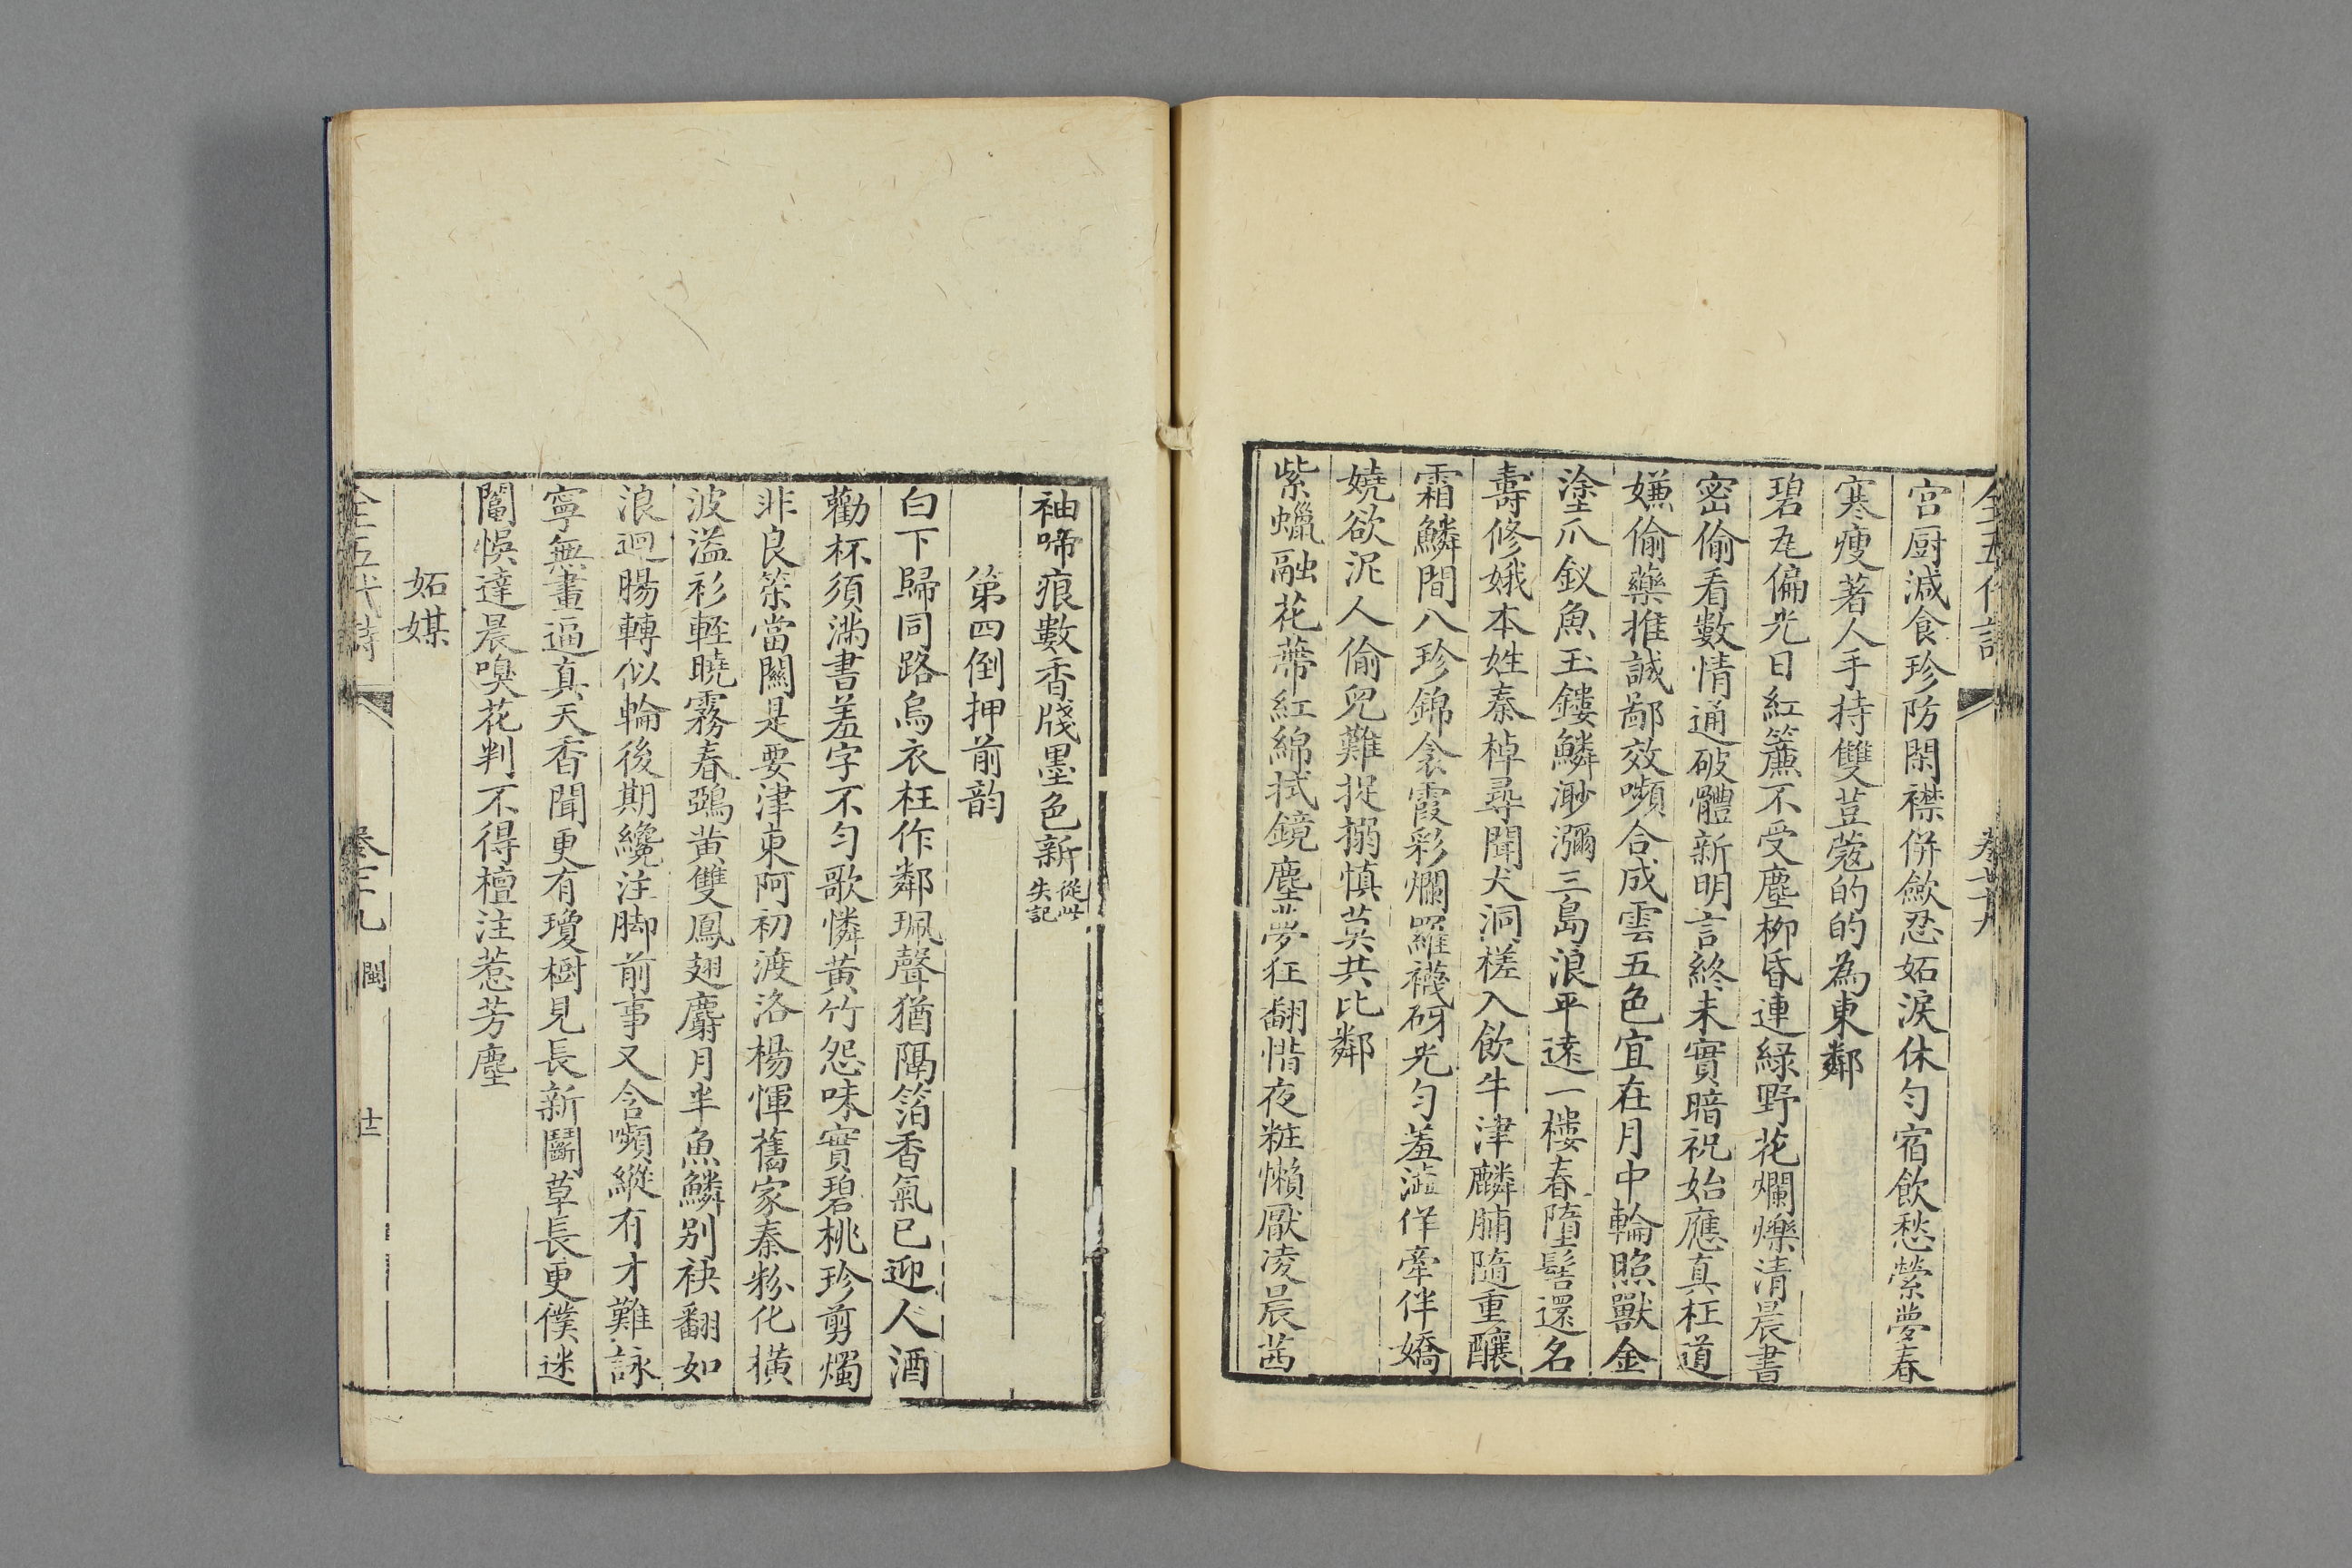 全五代詩 卷廿九
宮厨減食珍防閑襟併斂忍妬淚休勻宿飲愁縈夢春
寒瘦著人手持雙荳蔻的的為東鄰
碧瓦偏光日紅簾不受塵柳昏連綠野花爛爍清晨書
密偷看數情通破體新明言終未實暗祝始應真枉道
嫌偷藥推誠鄙效嚬合成雲五色宜在月中輪照獸金
塗爪釵魚玉鏤鱗渺瀰三島浪平遠一樓春墮髻還名
壽修娥本姓秦棹尋聞犬洞槎入飲牛津麟脯隨重釀
霜鱗間八珍錦衾霞彩爛羅襪砑光勻羞澁佯牽伴嬌
嬈欲泥人偷兒難捉搦慎莫共比鄰
紫蠟融花蒂紅綿拭鏡塵夢狂翻惜夜粧懶厭凌晨茜
袖啼痕數香牋墨色新從此失記
第四倒押前韵
白下歸同路烏衣枉作鄰珮聲猶隔箔香氣已迎人酒
勸杯須滿書羞字不勻歌憐黃竹怨味實碧桃珍剪燭
非良策當關是要津東阿初渡洛楊惲舊家秦粉化橫
波溢衫輕曉霧春鵶黃雙鳳翅麝月半魚鱗別袂翻如
浪迴腸轉似輪後期纔注脚前事又含嚬縱有才難詠
寧無畫逼真天香聞更有瓊樹見長新鬭草長更僕迷
鬮悞達晨嗅花判不得檀注惹芳塵
妬媒
全五代詩 卷二十九 閩 廿二